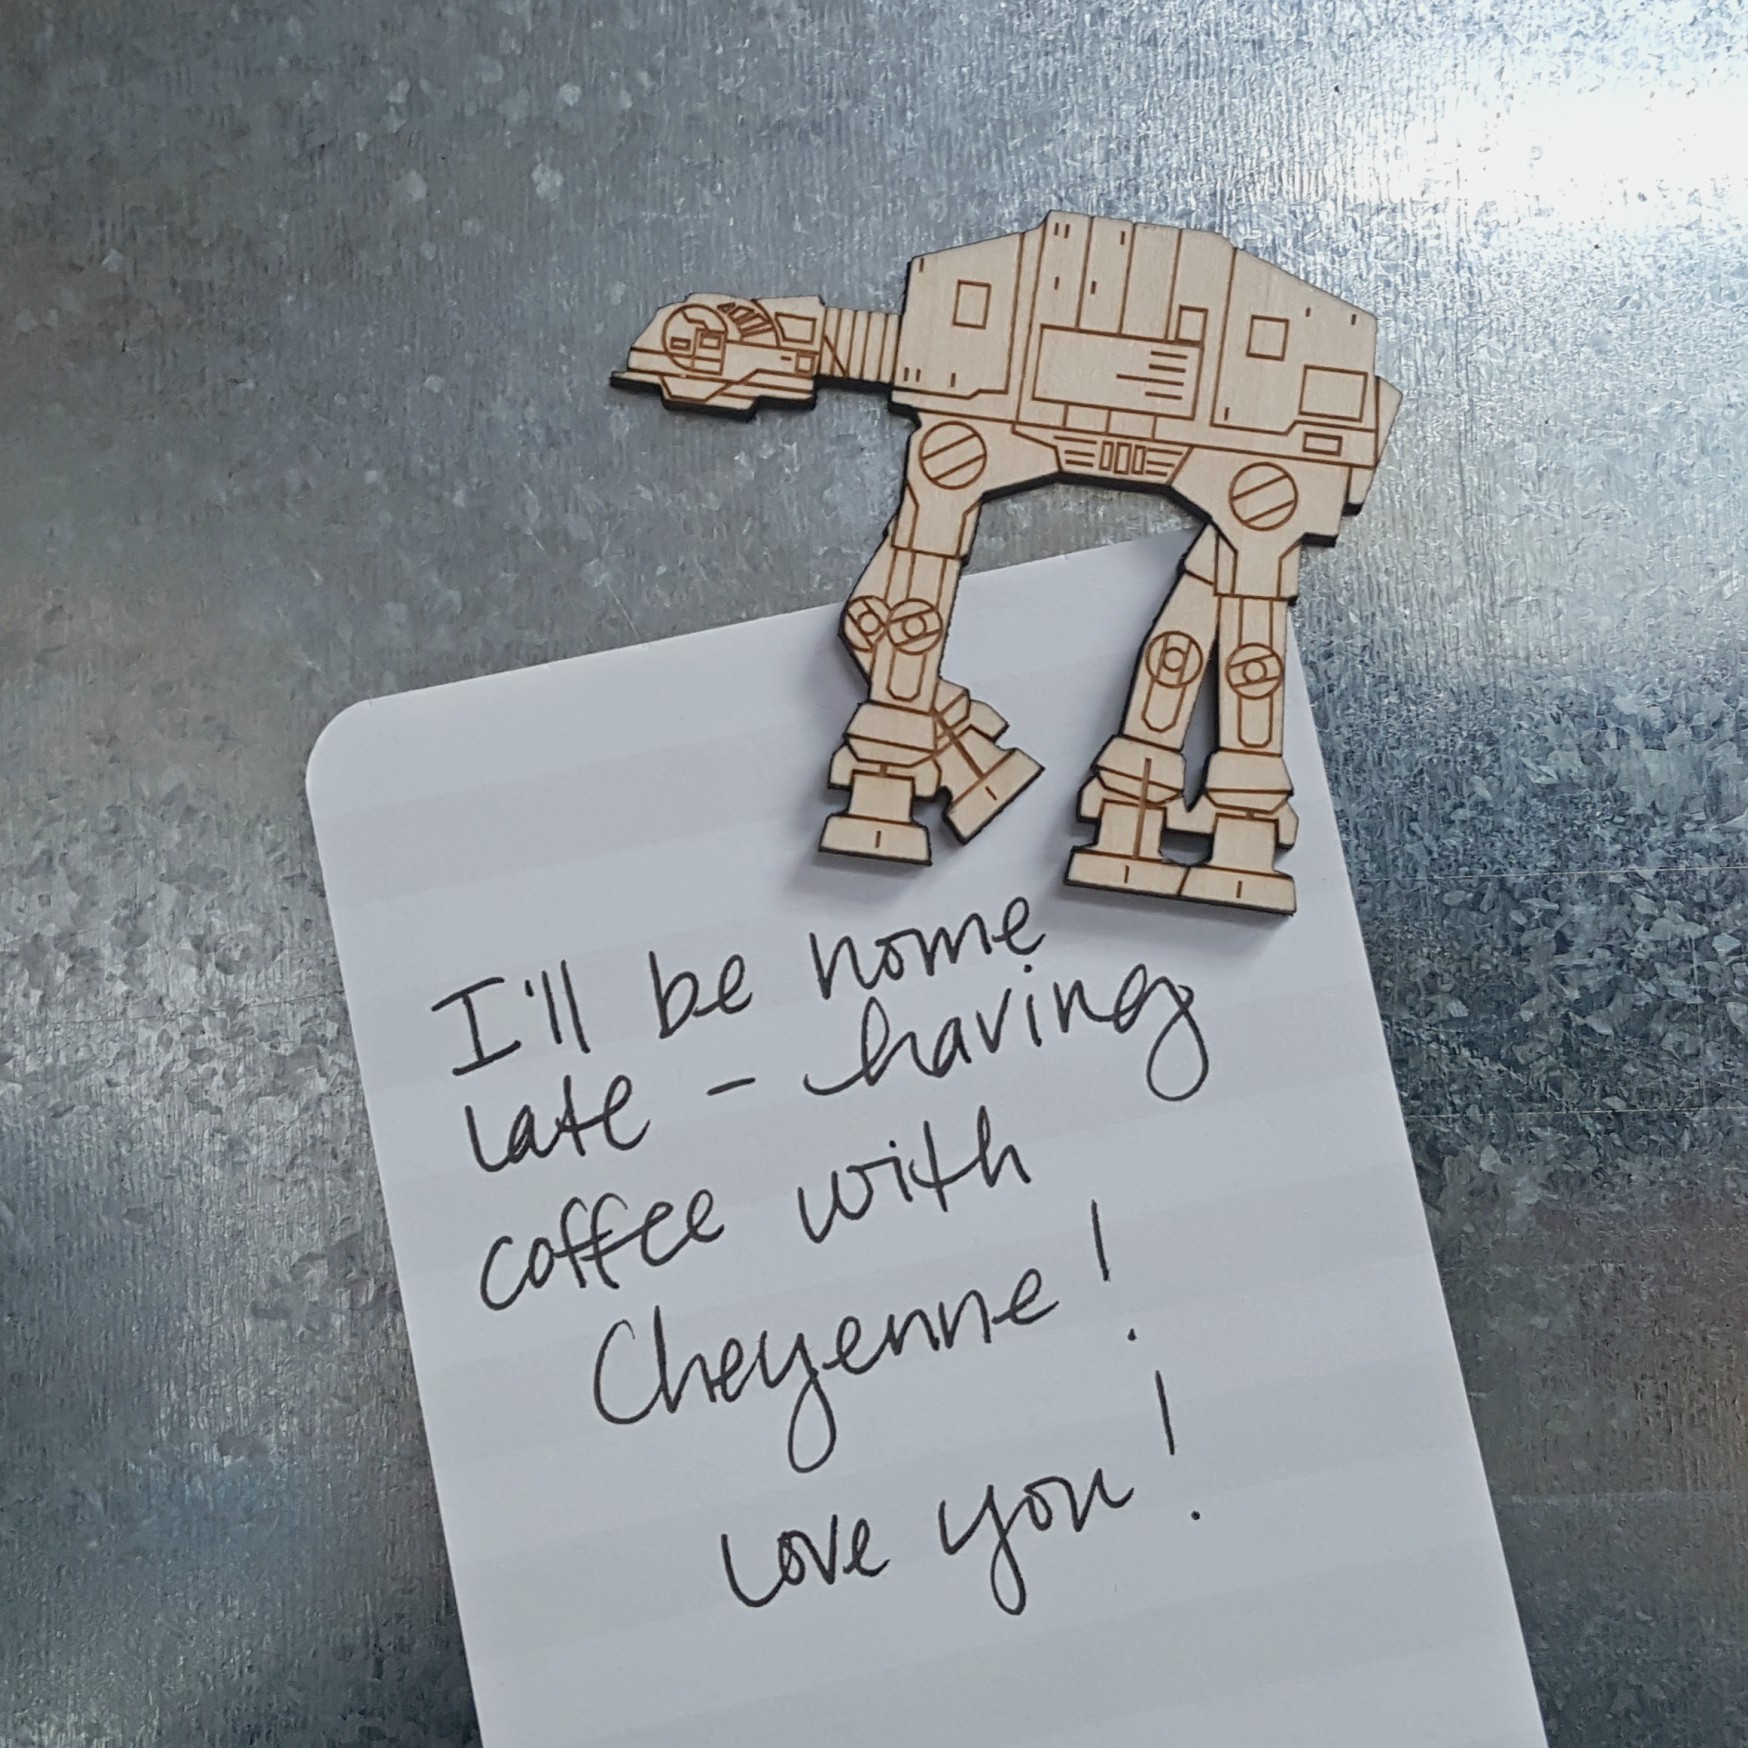 I'll be home
late - having
coffee with
Cheyenne!
love you!